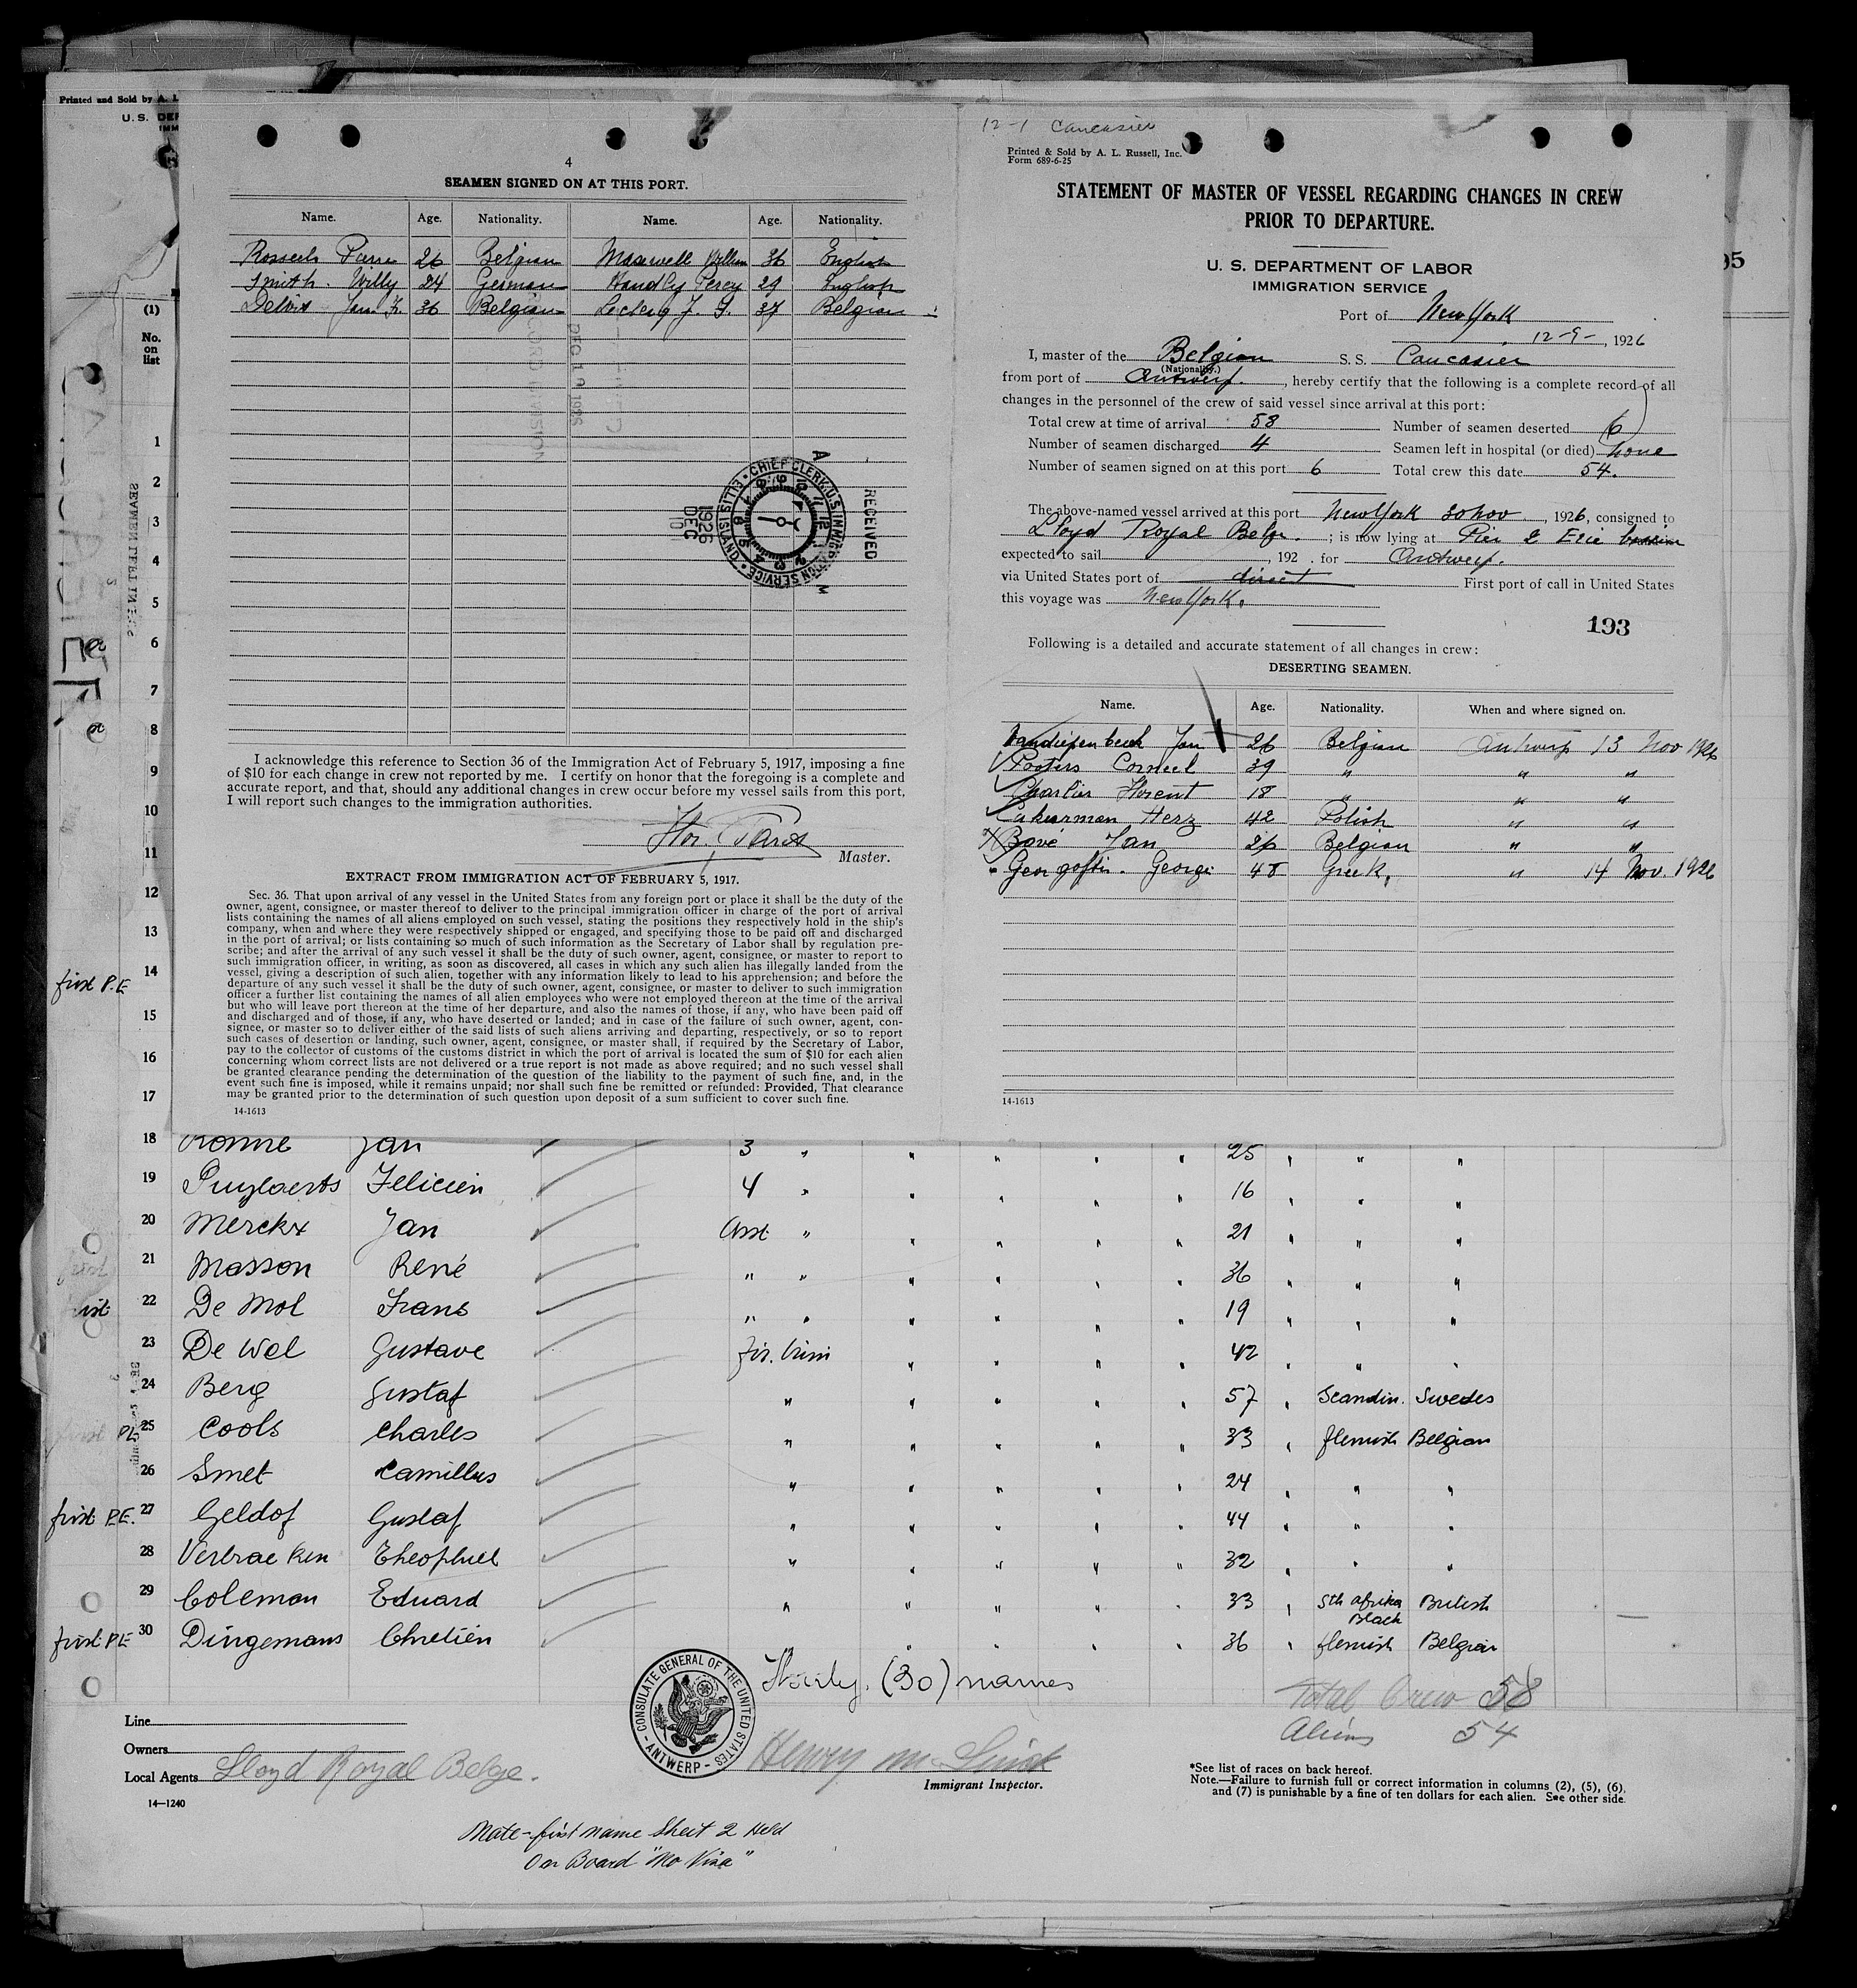 Printed and Sold by A. L
U. S. DEP
IMM
(1)
No.
on
list
4
SEAMEN SIGNED ON AT THIS PORT.
Name. Age. Nationality. Name. Age. Nationality.
Rosseels Pierre 26 Belgian Maxwell William 36 English
Smith. Willy 24 German Handly Percy 29 English
Jan. F. 36 Belgian Leclerq J. G. 37 Belgian
I acknowledge this reference to Section 36 of the Immigration Act of February 5, 1917, imposing a fine
of $10 for each change in crew not reported by me. I certify on honor that the foregoing is a complete and
accurate report, and that, should any additional changes in crew occur before my vessel sails from this port,
I will report such changes to the immigration authorities.
Master.
EXTRACT FROM IMMIGRATION ACT OF FEBRUARY 5, 1917.
Sec. 36. That upon arrival of any vessel in the United States from any foreign port or place it shall be the duty of the
owner, agent, consignee, or master thereof to deliver to the principal immigration officer in charge of the port of arrival
lists containing the names of all aliens employed on such vessel, stating the positions they respectively hold in the ship's
company, when and where they were respectively shipped or engaged, and specifying those to be paid off and discharged
in the port of arrival; or lists containing so much of such information as the Secretary of Labor shall by regulation pre-
scribe; and after the arrival of any such vessel it shall be the duty of such owner, agent, consignee, or master to report to
such immigration officer, in writing, as soon as discovered, all cases in which any such alien has illegally landed from the
vessel, giving a description of such alien, together with any information likely to lead to his apprehension; and before the
departure of any such vessel it shall be the duty of such owner, agent, consignee, or master to deliver to such immigration
officer a further list containing the names of all alien employees who were not employed thereon at the time of the arrival
but who will leave port thereon at the time of her departure, and also the names of those, if any, who have been paid off
and discharged and of those, if any, who have deserted or landed; and in case of the failure of such owner, agent, con-
signee, or master so to deliver either of the said lists of such aliens arriving and departing, respectively, or so to report
such cases of desertion or landing, such owner, agent, consignee, or master shall, if required by the Secretary of Labor,
pay to the collector of customs of the customs district in which the port of arrival is located the sum of $10 for each alien
concerning whom correct lists are not delivered or a true report is not made as above required; and no such vessel shall
be granted clearance pending the determination of the question of the liability to the payment of such fine, and, in the
event such fine is imposed, while it remains unpaid; nor shall such fine be remitted or refunded: Provided, That clearance
may be granted prior to the determination of such question upon deposit of a sum sufficient to cover such fine.
14-1613
RECEIVED
CHIEF CLERK U.S. IMMIGRATION SERVICE
ELLIS ISLAND
1926
DEC
10
A M
12-1 Caucasier
Printed & Sold by A. L. Russell, Inc.
Form 689-6-25
STATEMENT OF MASTER OF VESSEL REGARDING CHANGES IN CREW
PRIOR TO DEPARTURE.
U. S. DEPARTMENT OF LABOR
IMMIGRATION SERVICE
Port of New York
12-9-, 1926
I, master of the Belgian S. S. Caucasier
(Nationality.)
from port of Antwerp. , hereby certify that the following is a complete record of all
changes in the personnel of the crew of said vessel since arrival at this port:
Total crew at time of arrival 58 Number of seamen deserted 6
Number of seamen discharged 4 Seamen left in hospital (or died) none
Number of seamen signed on at this port 6 Total crew this date 54.
The above-named vessel arrived at this port New York 30 nov , 1926, consigned to
Lloyd Royal Belge. ; is now lying at Pier 2 Erie bassin
expected to sail , 192 . for Antwerp.
via United States port of direct First port of call in United States
this voyage was New York.
193
Following is a detailed and accurate statement of all changes in crew:
DESERTING SEAMEN.
Name. Age. Nationality. When and where signed on.
Vandiepenbeek Jan 26 Belgian Antwerp 13 Nov 1926
Pooters Corneel 39 " " "
Charlier Florent 18 " " "
Ackerman Herz 42 Polish " "
Bové Jan 26 Belgian " "
Georgoftis. George 48 Greek, " 14 Nov. 1926
14-1613
95
1
2
3
4
5
6
7
8
9
10
11
12
13
first P.E 14
15
16
17
18 Jan 3 " " " " " 25 " " "
19 Puylaerts Felicien 4 " " " " " 16 " " "
20 Merckx Jan Asst " " " " " 21 " " "
21 Masson René " " " " " " 36 " " "
22 De Mol Frans " " " " " " 19 " " "
23 De Wel Gustave " " " " 42 " " "
24 Berg Gustaf " " " " " 57 " Scandin. Swedes
25 Cools Charles " " " " " 33 " flemish Belgian
26 Smet Camillus " " " " " 24 " " "
first P.E. 27 Geldof Gustaf " " " " " 44 " " "
28 Verbraeken Theophiel " " " " " 32 " " "
29 Coleman Eduard " " " " " 33 " Sth Afrika Black British
first P.E 30 Dingemans Chretien " " " " " 36 " flemish Belgian
Thirty (30) names
Total Crew 58
Aliens 54
CONSULATE GENERAL OF THE UNITED STATES
ANTWERP
Line
Owners
Local Agents Lloyd Royal Belge.
14—1240
Immigrant Inspector.
*See list of races on back hereof.
Note.—Failure to furnish full or correct information in columns (2), (5), (6),
and (7) is punishable by a fine of ten dollars for each alien. See other side.
Mate - first name Sheet 2 Held
On Board "No Visa"